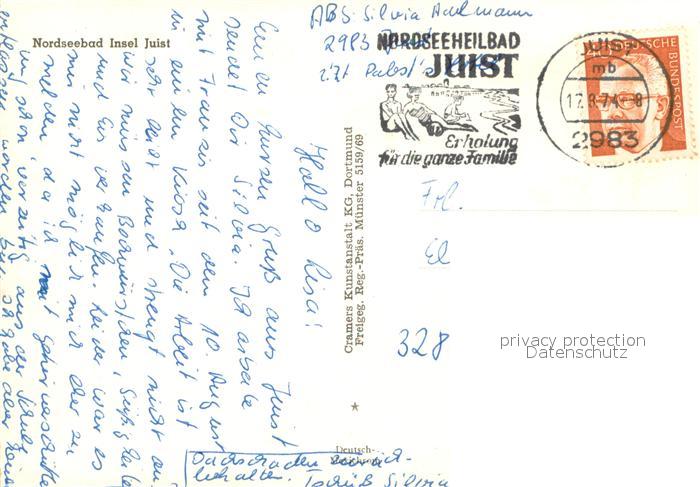 Nordseebad Insel Juist
ABS: Silvia
2983
z.Zt.
NORDSEEHEILBAD
JUIST
Erholung
für die ganze Familie
JUIST
mb
17.8.71-8
2983
DEUTSCHE BUNDESPOST
Hallo Lisa!
Einen kurzen Gruß aus Juist
sendet Dir Silvia. Ich arbeite
mit Frau seit dem 10. August
in einem Kiosk. Die Arbeit ist
sehr leicht und strengt nicht an,
wir müssen Bockwürstchen,
und Eis verkaufen. Leider war es
mir nicht möglich mich eher zu
melden, da ich
schon vorzeitig aus der Schule
entlassen worden bin. Ich habe aber keinen
Dachschaden
behalten. Tschüß Silvia
Cramers Kunstanstalt KG, Dortmund
Freigeg. Reg.-Präs. Münster 5159/69
Deutsch-
Frl.
El
328
privacy protection
Datenschutz